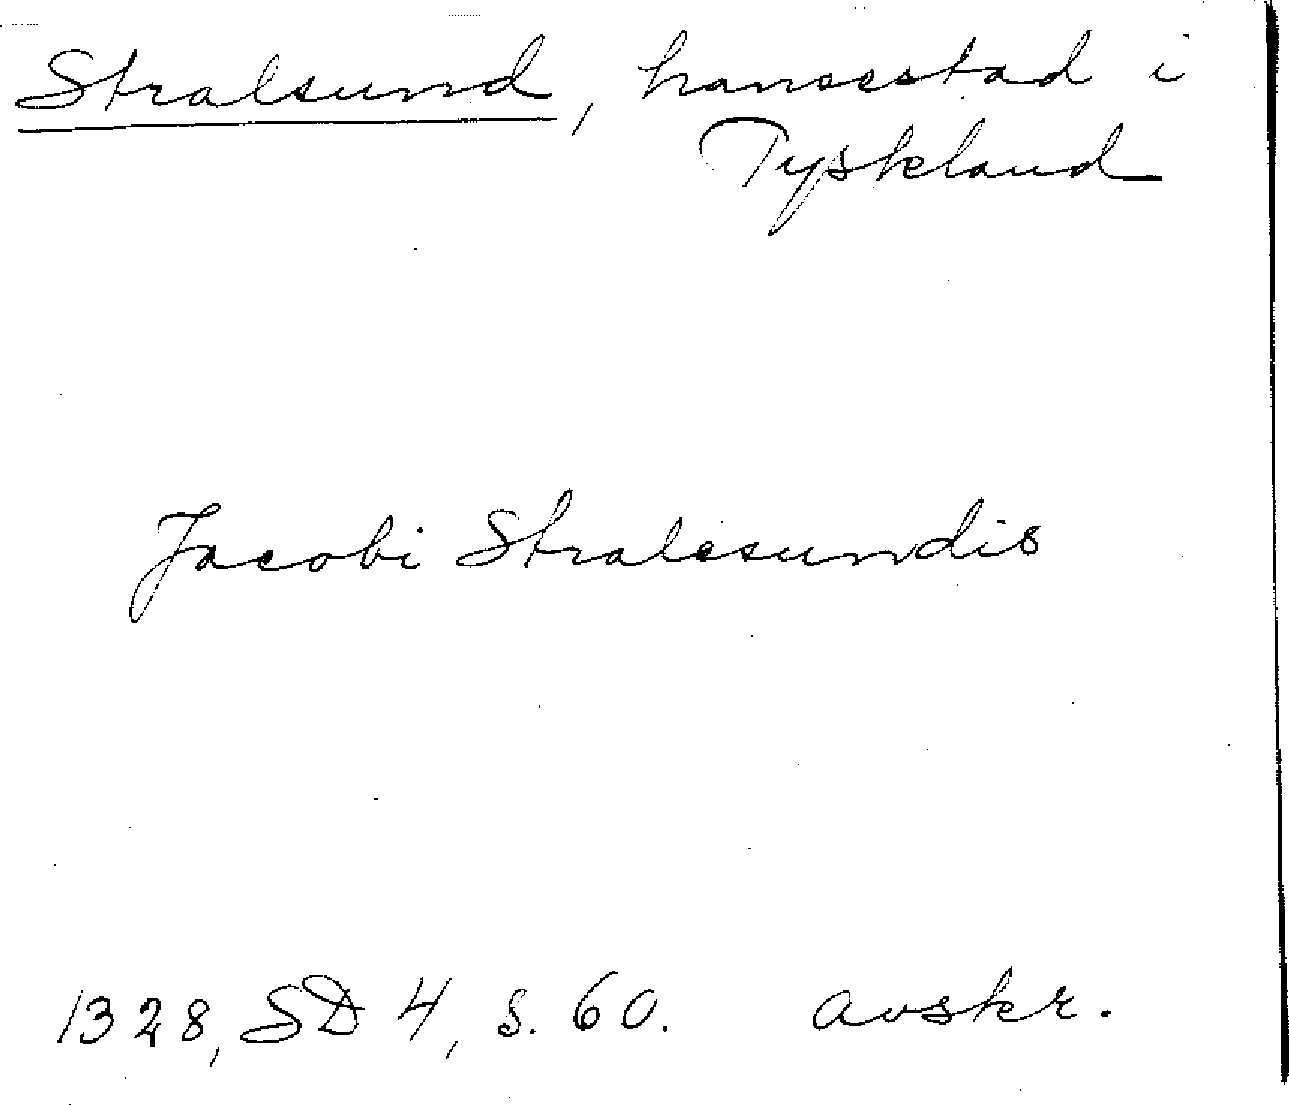 Stralsund, hansestad i
Tyskland
Jacobi Stralesundis
1328, SD 4, s. 60. avskr.